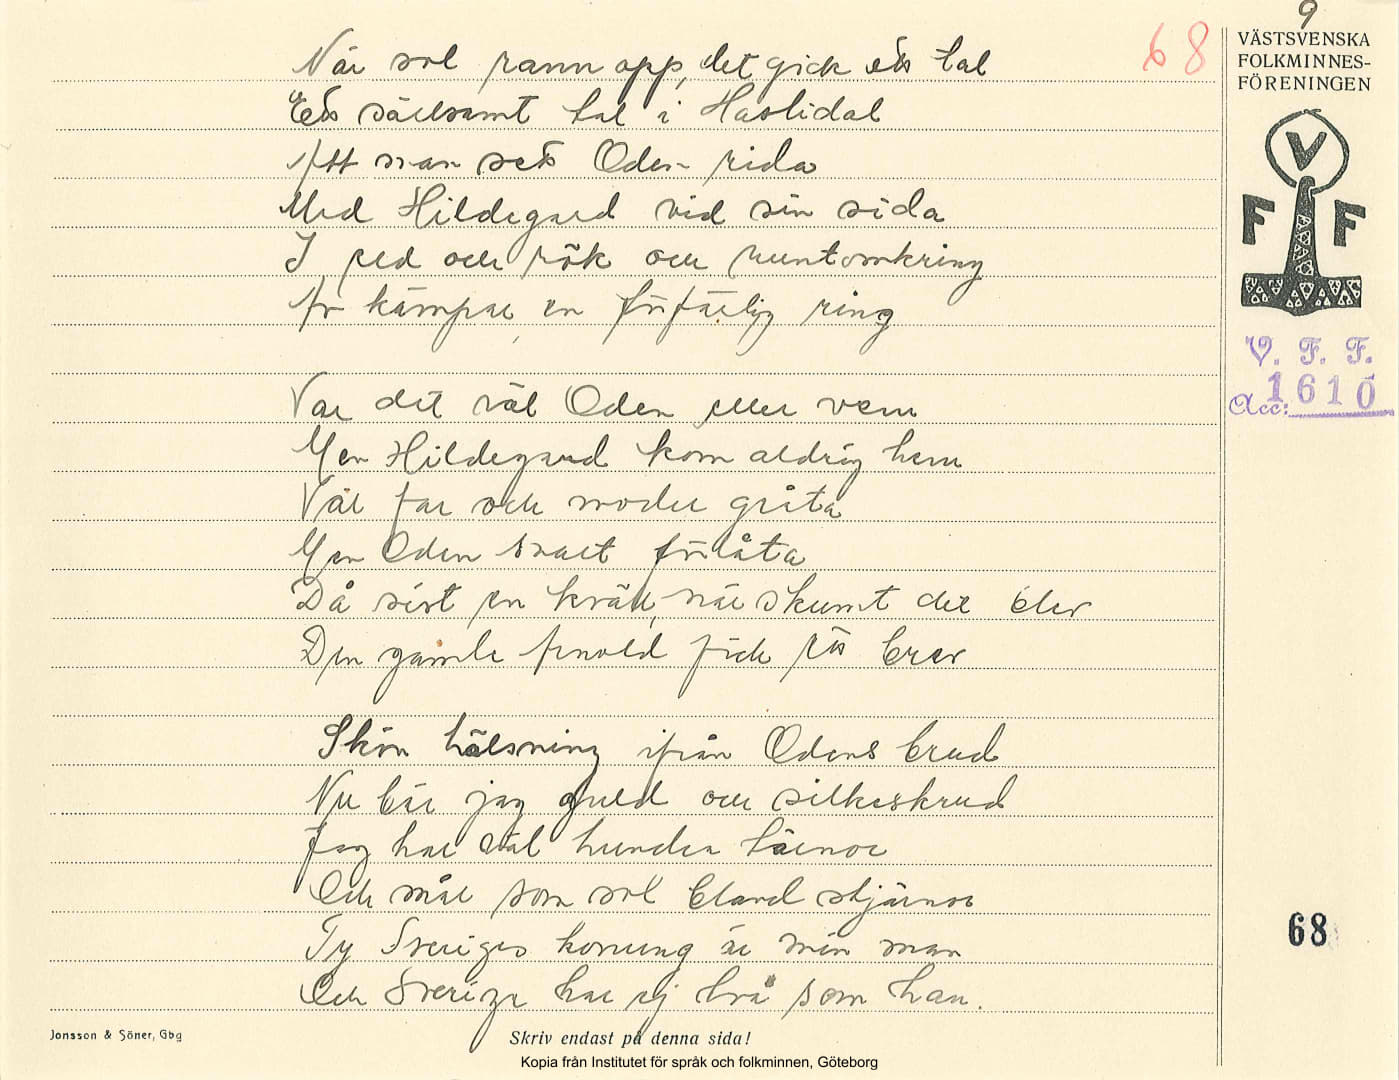 9
68
VÄSTSVENSKA
FOLKMINNES-
FÖRENINGEN
V
F F
V. F. F.
Acc: 1610
När sol rann opp, det gick ett tal
Ett sällsamt tal i Haslidal
Att man sett Oden rida
Med Hildegard vid sin sida
I eld och rök och runtomkring
Av kämpar en förfärlig ring
Var det väl Oden eller vem
Men Hildegard kom aldrig hem
Väl far och moder gråta
Men Oden svart förlåta
Då sist en kväll, när skumt det blev
Den gamle Arnold fick ett brev
Skön hälsning ifrån Odens brud
Nu bär jag guld och silkeskrud
Jag har väl hundra tärnor
Och mål som sol bland stjärnor
Ty Sveriges konung är min man
Och Sverige har ej två som han.
68
Jonsson & Söner, Gbg
Skriv endast på denna sida!
Kopia från Institutet för språk och folkminnen, Göteborg